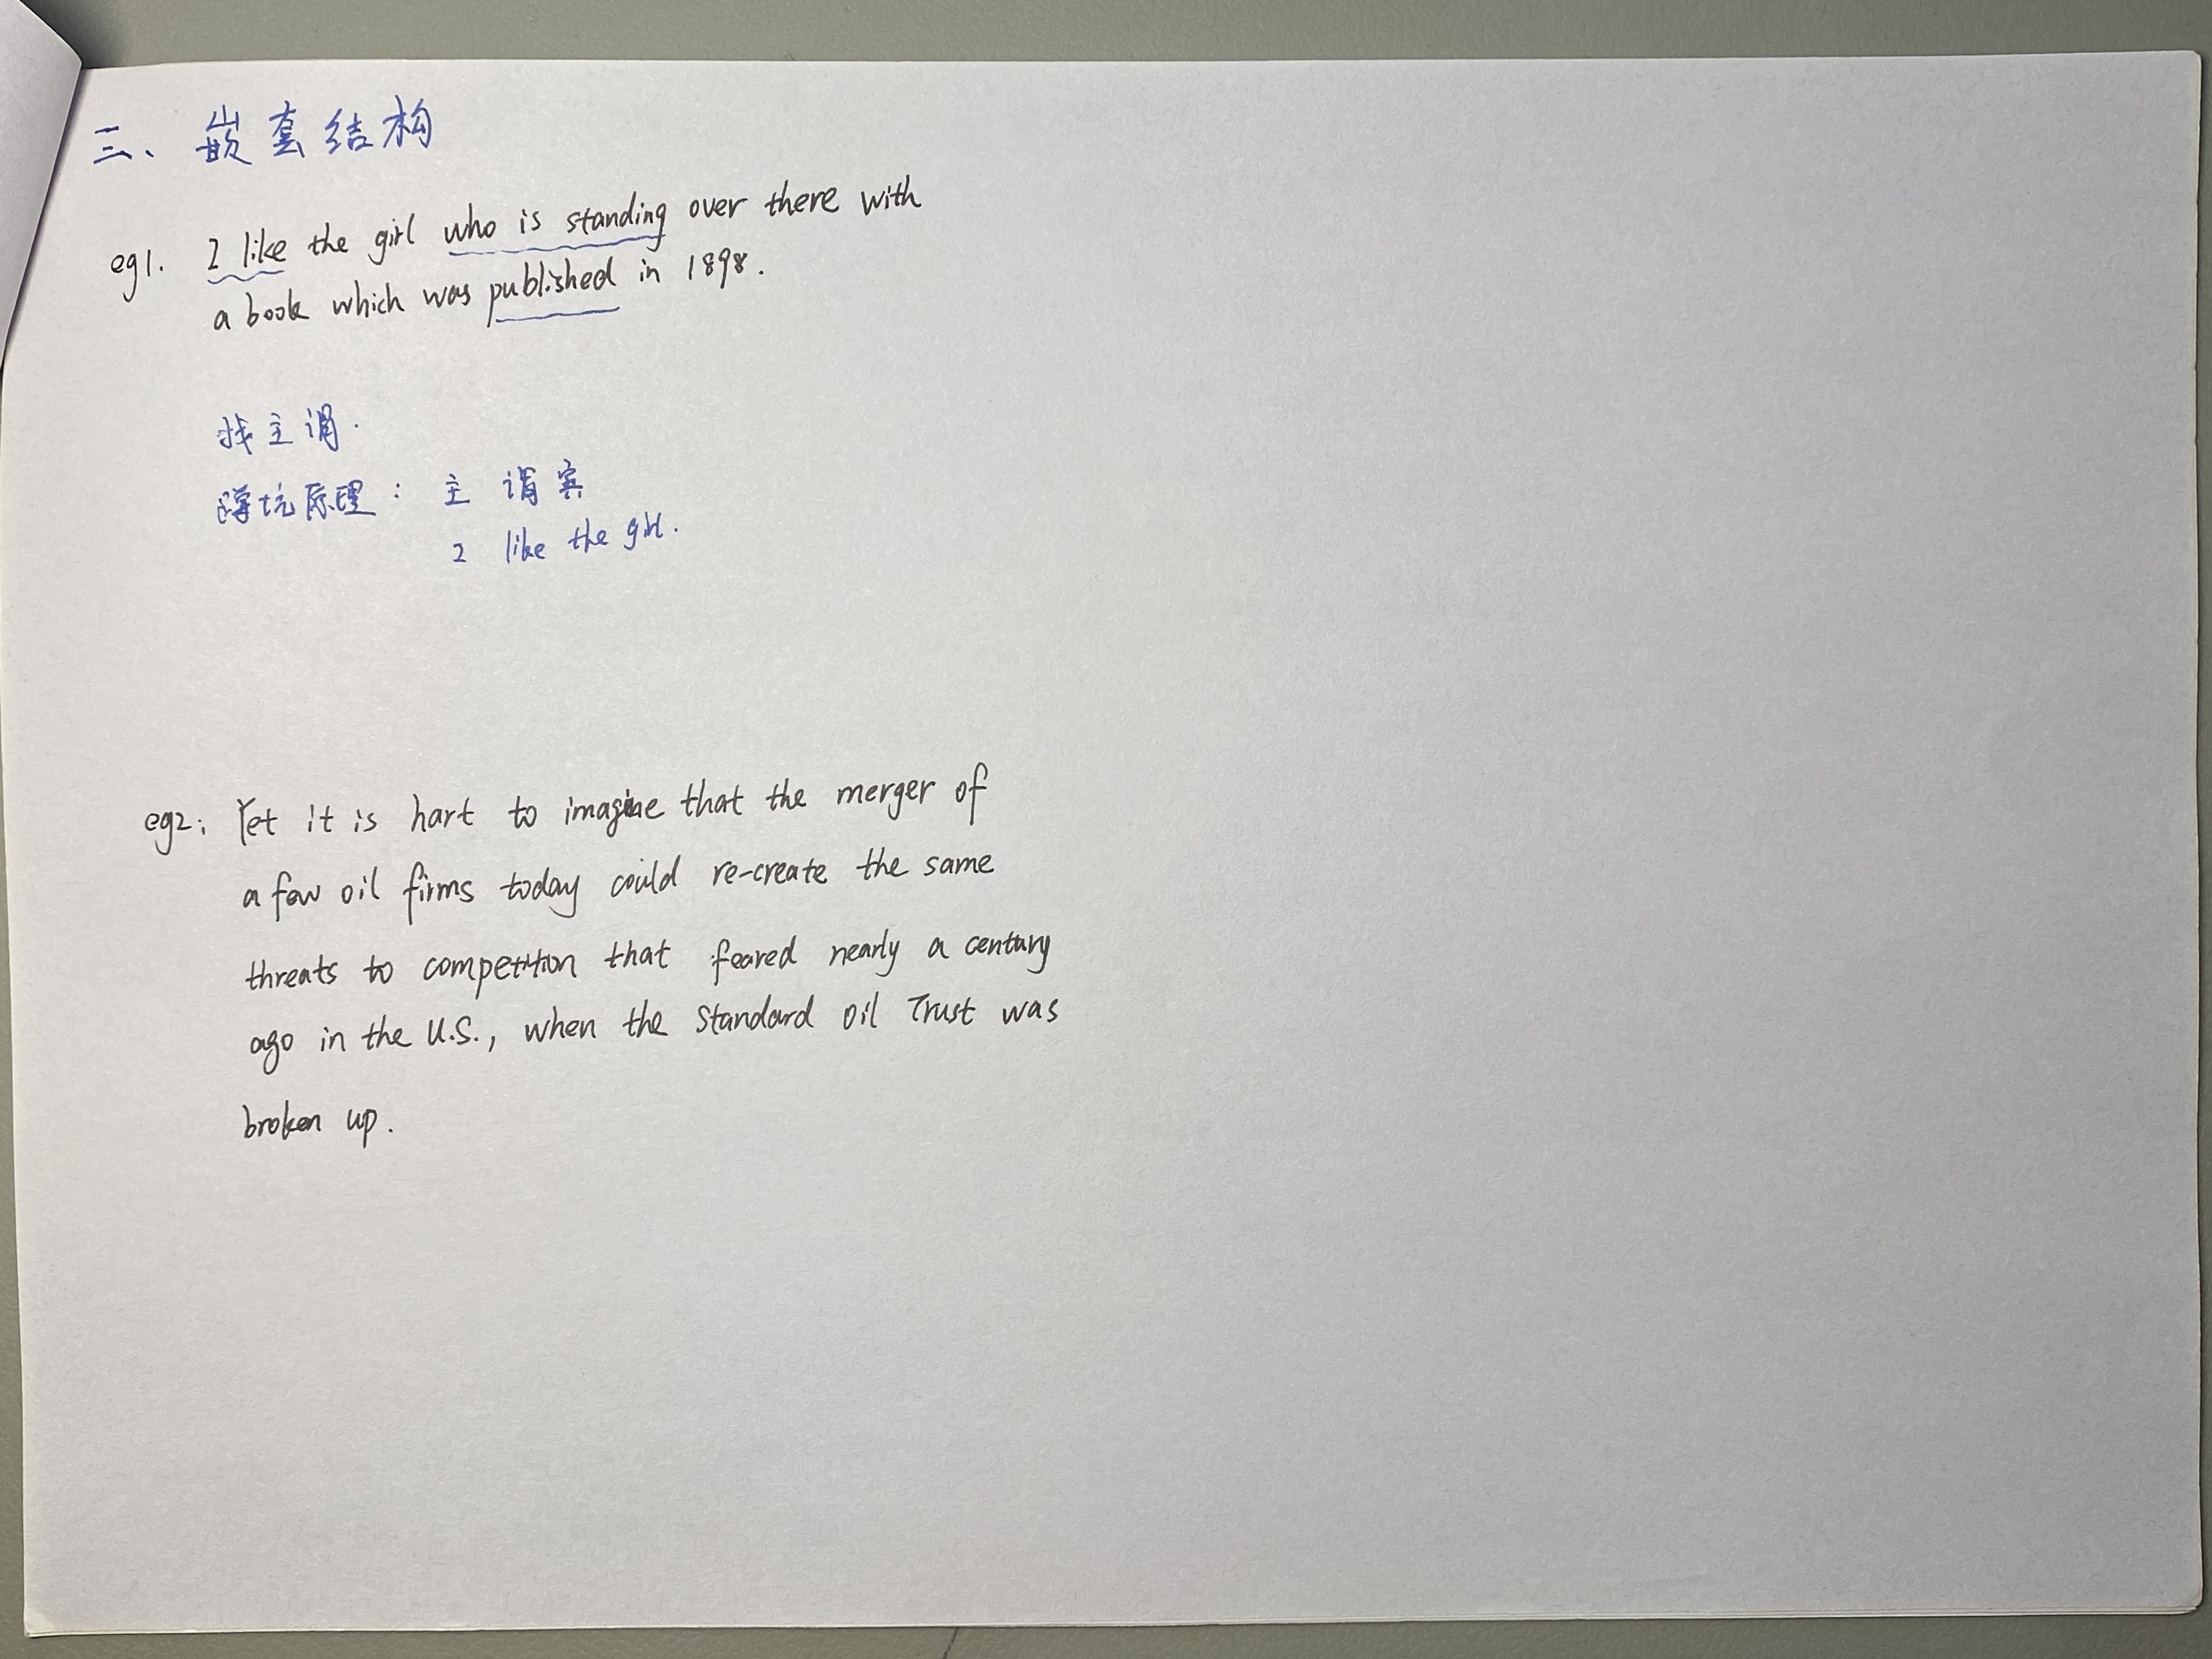 三、嵌套结构
eg1. I like the girl who is standing over there with
a book which was published in 1898.
找主谓.
蹲坑原理: 主 谓 宾
I like the girl.
eg2: Yet it is hart to imagine that the merger of
a few oil firms today could re-create the same
threats to competition that feared nearly a century
ago in the U.S., when the Standard Oil Trust was
broken up.